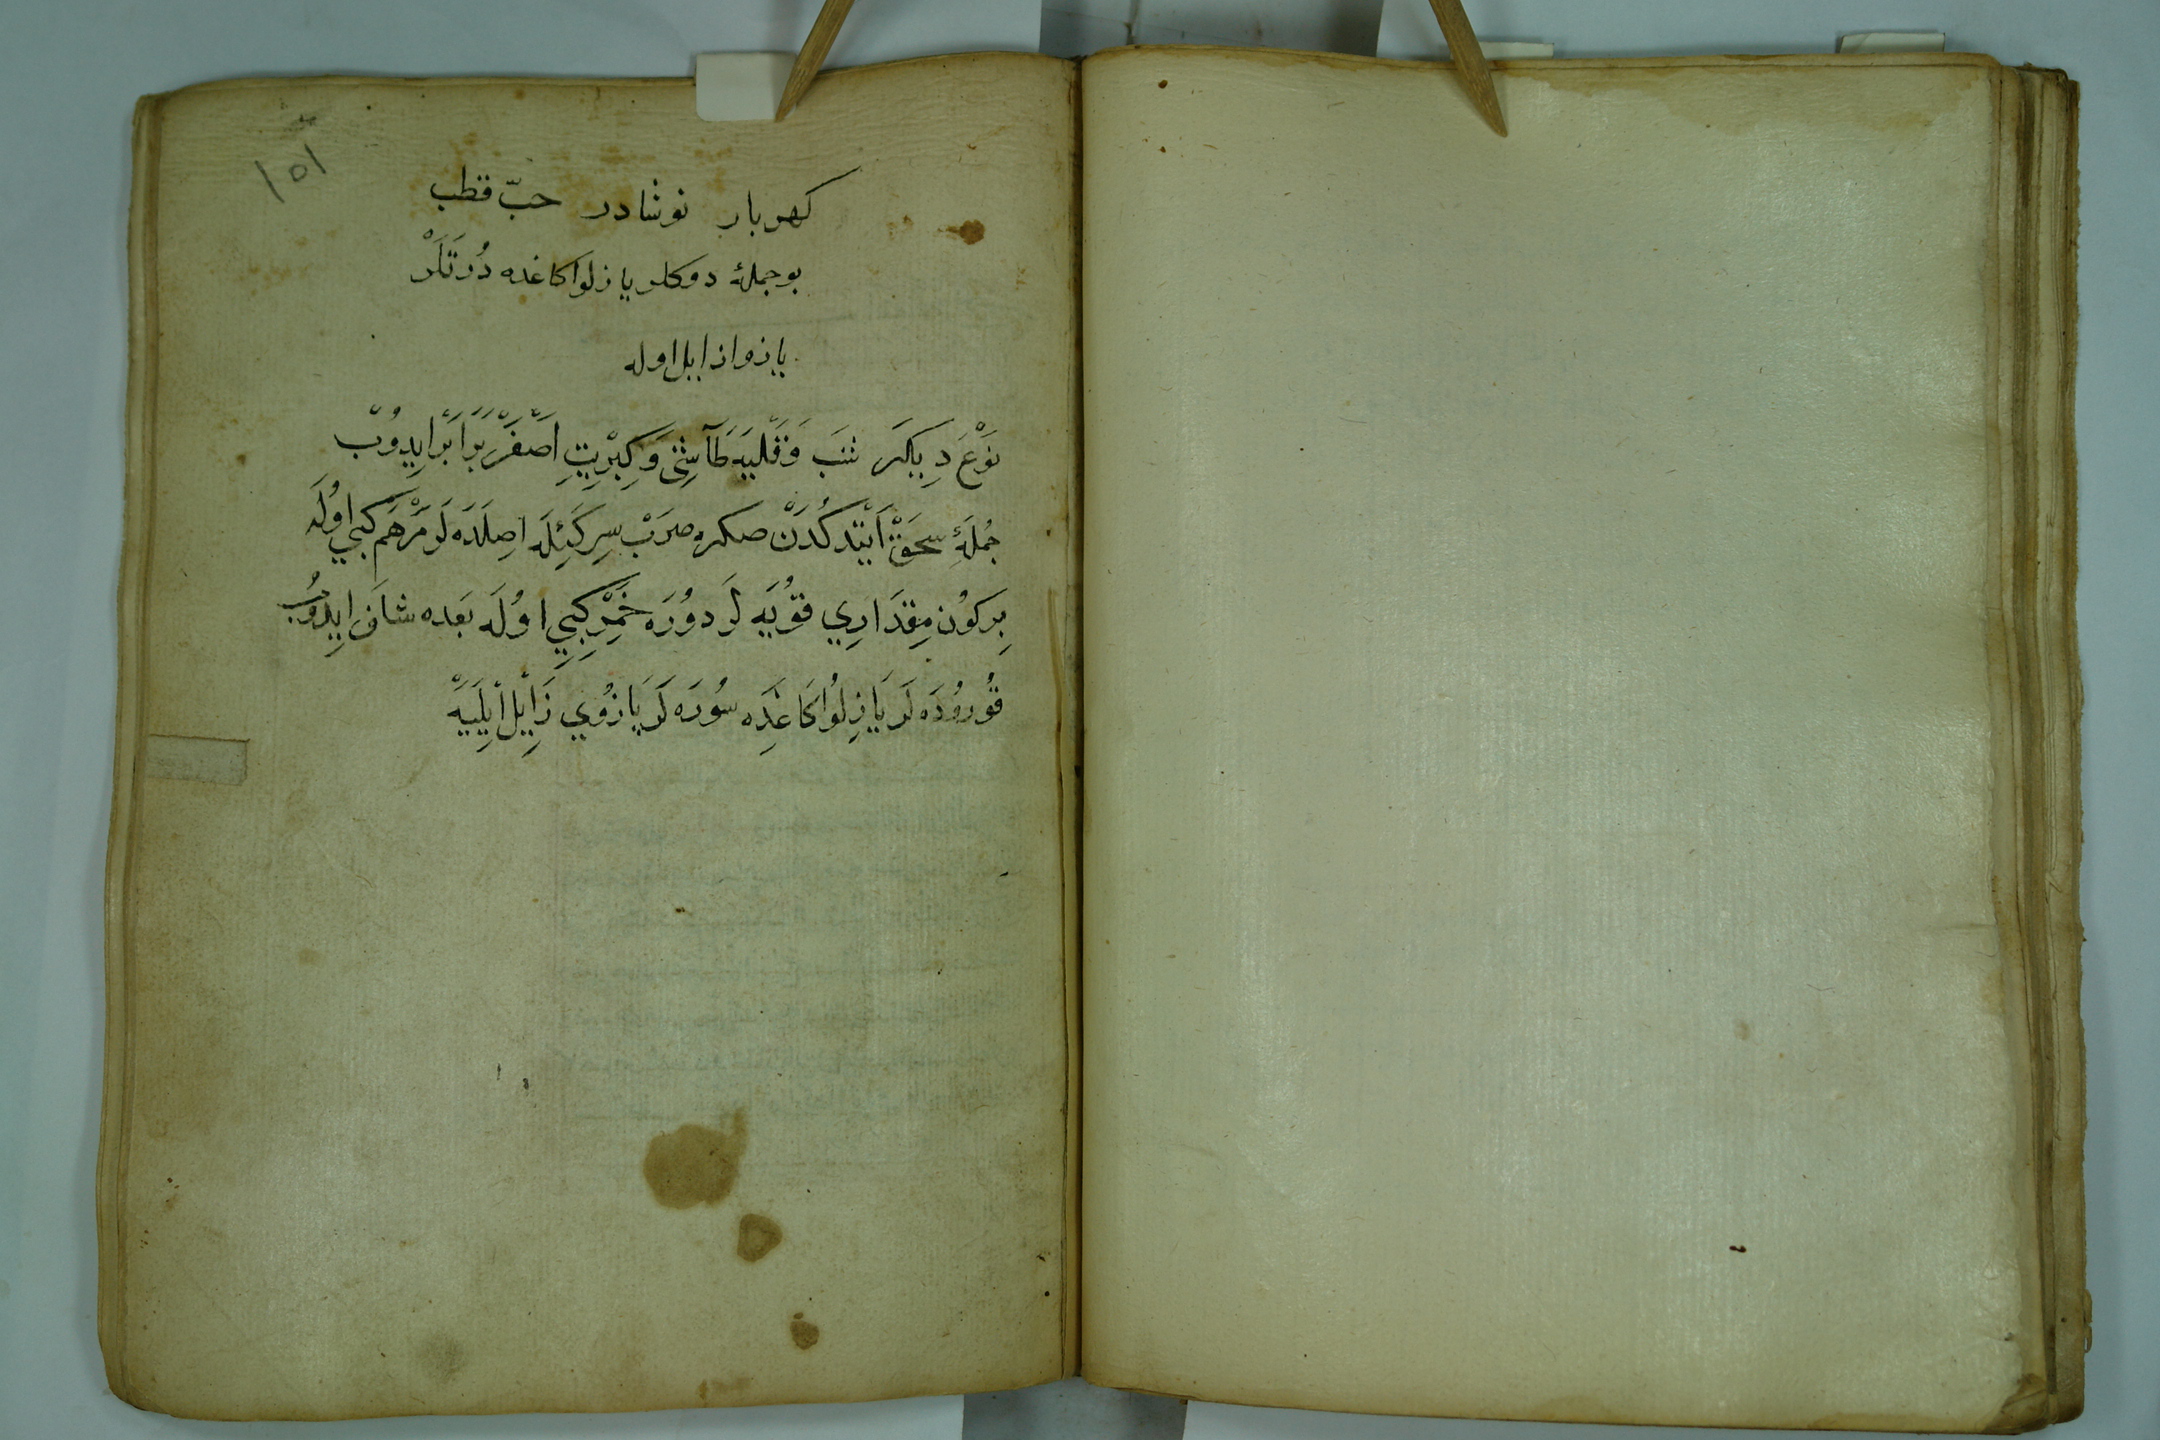 ١٥١
كهربار نوشادر حبّ قطب
بو جملهٔ دوكلر يازلوا كاغده دُرتَلَرْ
يازو زايل اوله
نَوْعَ دِيكَر شَب وَقَلْيَه طَاشِي وَكِبْرِيتِ اَصْفَرْ بَرَابَرْ ايدُوبْ
جُمْلَهٔ سَحَقْ اَيْتِدكدَنْ صكره صرَبْ سِركَيْلَه اصِلَدَه لَر مَرْهَم كبي اوُلَه
بِركوُن مِقدَارِي قوُيَه لَر دوُرَه خَمِرْ كِبِي اوُلَه بَعده شاف ايدُوبْ
قوُروُدَه لَر يَازِلوُا كَاغَدَه سوُرَه لَر يَازوُيِ زَايِل اَيِلَيَهْ